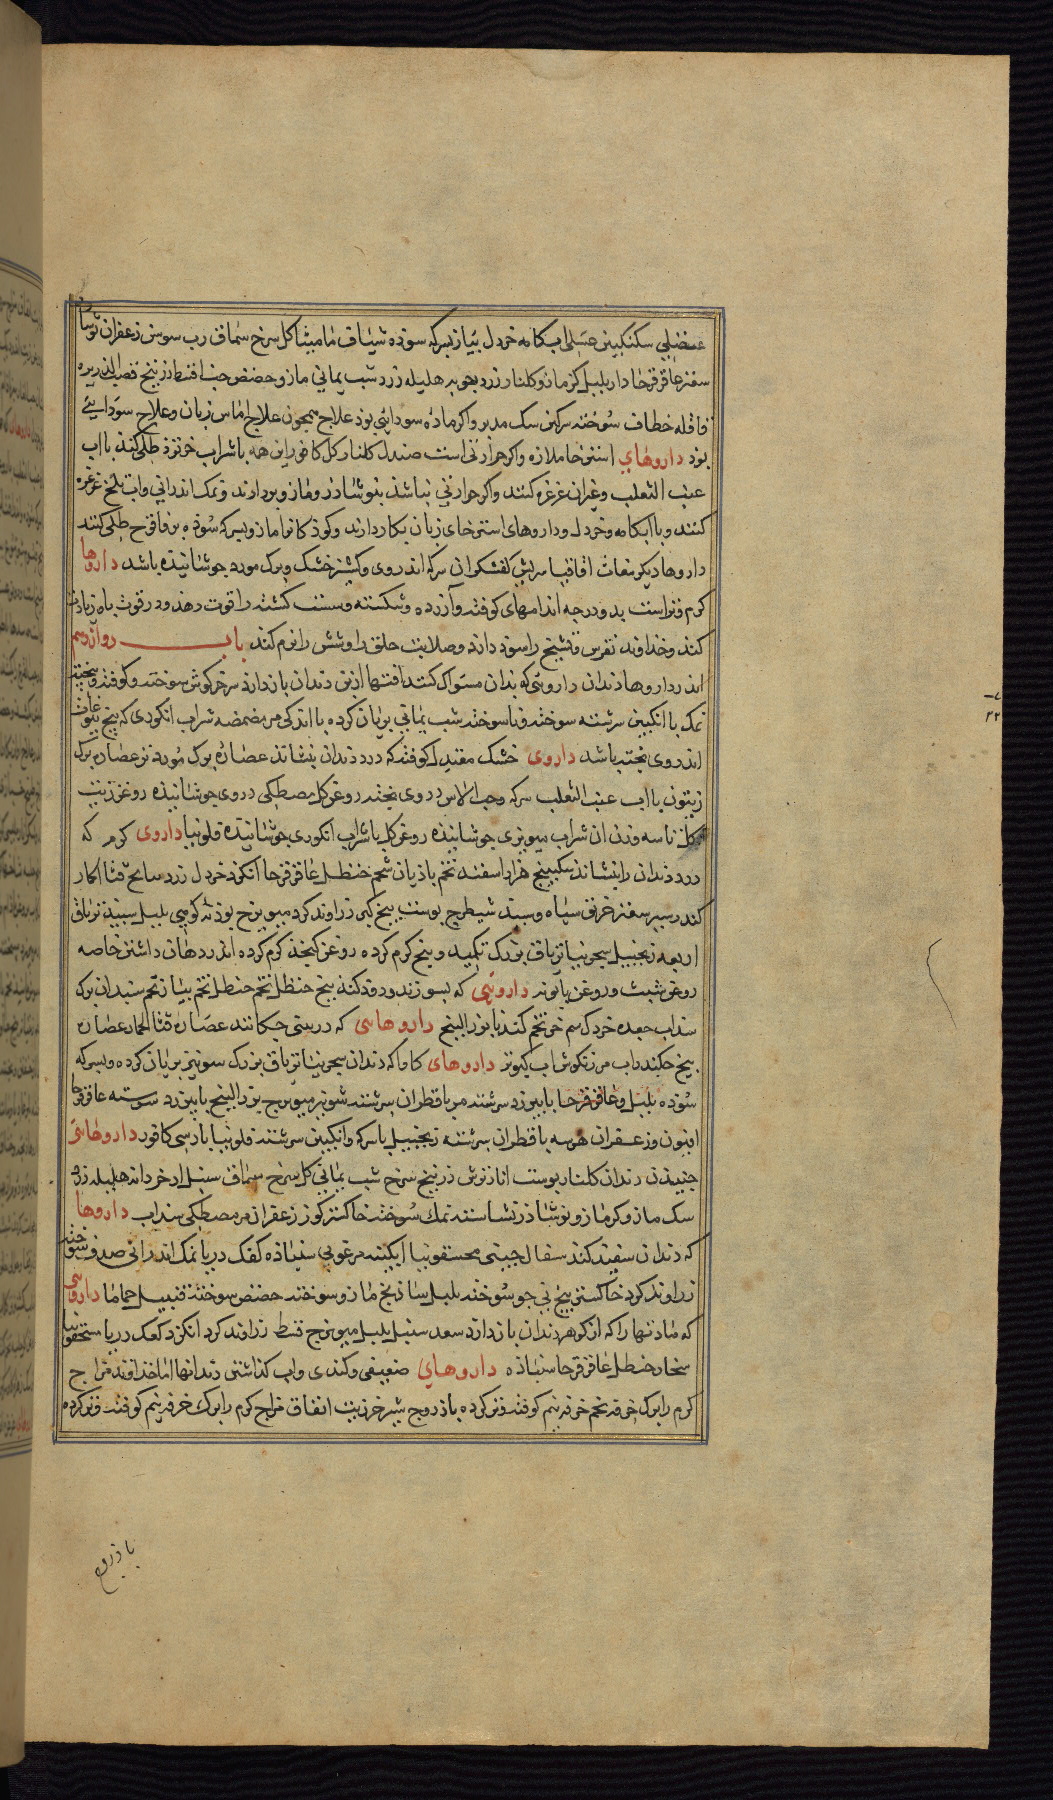 عنصلی سکنکبین عسلی ابکامه خردل بیاز بسرکه سوده شیاف مامیثا کل سرخ سماق رب سوس زعفران
سعتر عاقرقرحا دار بلبل کزمازو کلنار زردجوبه هلیله زرد شب یمانی مازو حضض زرنیخ
قاقله خطاف سوخته سرکین سک مدبر واکر ماده سودائی بوذ علاج همجون علاج اماس زبان وعلاج سودایی
بوذ داروهای استرخا ملازه واکر حرارتی است صندل کلنار کل کافور این همه باشراب خرنوذ طلی کنند با اب
عنب الثعلب وغیران غرغره کنند واکر حرارتی نباشذ بنوشاذر ومازو بردارند ونمک اندرانی واب تلخ غرغره
کنند وبا ابکامه وخردل وداروهای استرخای زبان بکار دارند وکوذکانرا مازو بسرکه سوذه بر طلی کنند
داروها دیکر منفعات اقاقیا سریش کفشکران سرکه اندروی وکشنیز خشک وبرک مورد جوشانیده باشد داروها
کرم وتر است بدو درجه اندامهای کوفته وآزرده وشکسته وسست کشته را قوت دهد ودر قوت باه زیادت
کند وخداوند نقرس وتشنج را سوذ دارد وصلابت حلق را وشش را نرم کند باب دوازدهم
اندر داروها دندان داروئی که بدان مسواک کنند افتها ازبن دندان بازدارد سر خرکوش سوخته وکوفته وبیخته
نمک با انکبین سرشته سوخته وناسوخته شب یمانی بریان کرده با اندکی مر مضمضه شراب انکوری که بیخ
اندروی بخته باشد داروی خشک معتدل کوفته که درد دندان بنشاند عصاره برک مورد تر عصاره برک
زیتون با اب عنب الثعلب سرکه وحب الاس دروی بخته روغن کل مصطکی دروی جوشانیده روغن زیت
با سه وزن ان شراب مویزی جوشانیده روغن کل با شراب انکوری جوشانیده فلونیا داروی کرم که
درد دندان را بنشاند سکبینج هزار اسفند تخم بازیان شحم حنظل عاقرقرحا انکزد خردل زرد قثا الحمار
کندر سیر سعتر خربق سیاه وسبید شیطرج بوست بیخ کبر زراوند کرد میویزج بوذنه کوهی بلبل سبید تریاق
اربعه زنجبیل سجزینا تریاق بزرک تکمید ویخ کرم کرده روغن کنجد کرم کرده اندر دهان داشتن خاصه
روغن شبت وروغن بابونه داروئی که بسوزند ودود کنند بیخ حنظل تخم حنظل تخم بیاز تخم سندان برک
سداب جعده خردل سم خر تخم کندنا بزر البنج داروهائی که دربینی جکانند عصاره قثا الحمار عصاره
بیخ جکندر اب مرزنکوش اب کبوتر داروهای کاواک دندان سجزینا تریاق بزرک شونیز بریان کرده وبسرکه
سوذه بلبل وعاقرقرحا با بیرزد سرشته مر با قطران سرشته شونیز میویزج بزر البنج با بیرزد سرشته عاقرقرحا
افیون وزعفران هرسه با قطران سرشته زنجبیل با سرکه وانکبین سرشته فلونیا بارسی کافور داروهائی
جنبیدن دندان کلنار بوست انار ترش زرنیخ سرخ شب یمانی کل سرخ سماق سنبل اذخر دانه هلیله زرد
سک مازو کزمازو نوشاذر نشاسته نمک سوخته خاکستر کوزن زعفران مر مصطکی سنداب داروها
که دندان سفید کند سفال جینی مسحقونیا ابکینه مرغوبی سنباذه کفک دریا نمک اندرانی صدف سوخته
زراوند کرد خاکستر بیخ نی جو سوخته بلبل ساذنج مازو سوخته حضض سوخته قنبیل حماما داروئی
که ماذتها را که ازکوهر دندان بازدارد سعد سنبل بلبل میویزج قسط زراوند کرد انکزد کفک دریا مسحقونیا
سخار حنظل عاقرقرحا سنباذه داروهای ضعیفی وکندی واب کذاشتن دندانها اما خداوند مزاج
کرم را برک خرفه تخم خرفه نیم کوفته وتر کرده باذروج شیر خر زیت انفاق مزاج کرم را برک خرفه نیم کوفته وتر کرده
باذروج